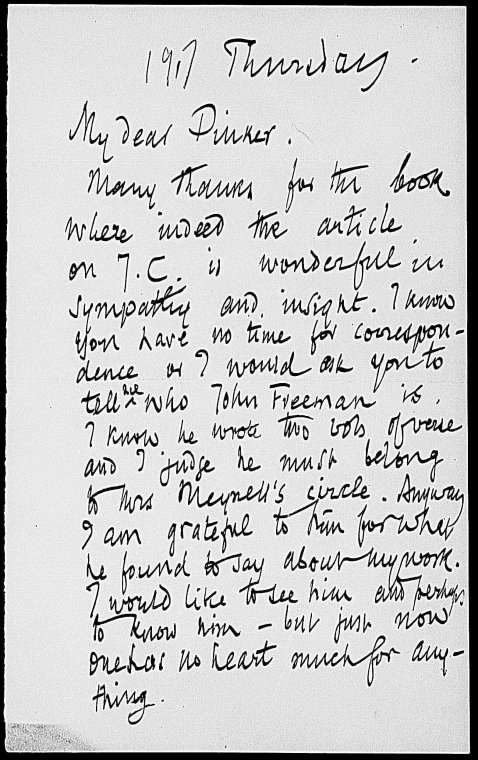 1917 Thursday.
My dear Pinker.
Many thanks for the book
where indeed the article
on J.C. is wonderful in
sympathy and insight. I know
you have no time for correspon-
dence or I would ask you to
tell me who John Freeman is.
I know he wrote two vols of verse
and I judge he must belong
to Mrs Meynell's circle. Anyway
I am grateful to him for what
he found to say about my work.
I would like to see him and perhaps
to know him – but just now
one has no heart much for any-
thing.